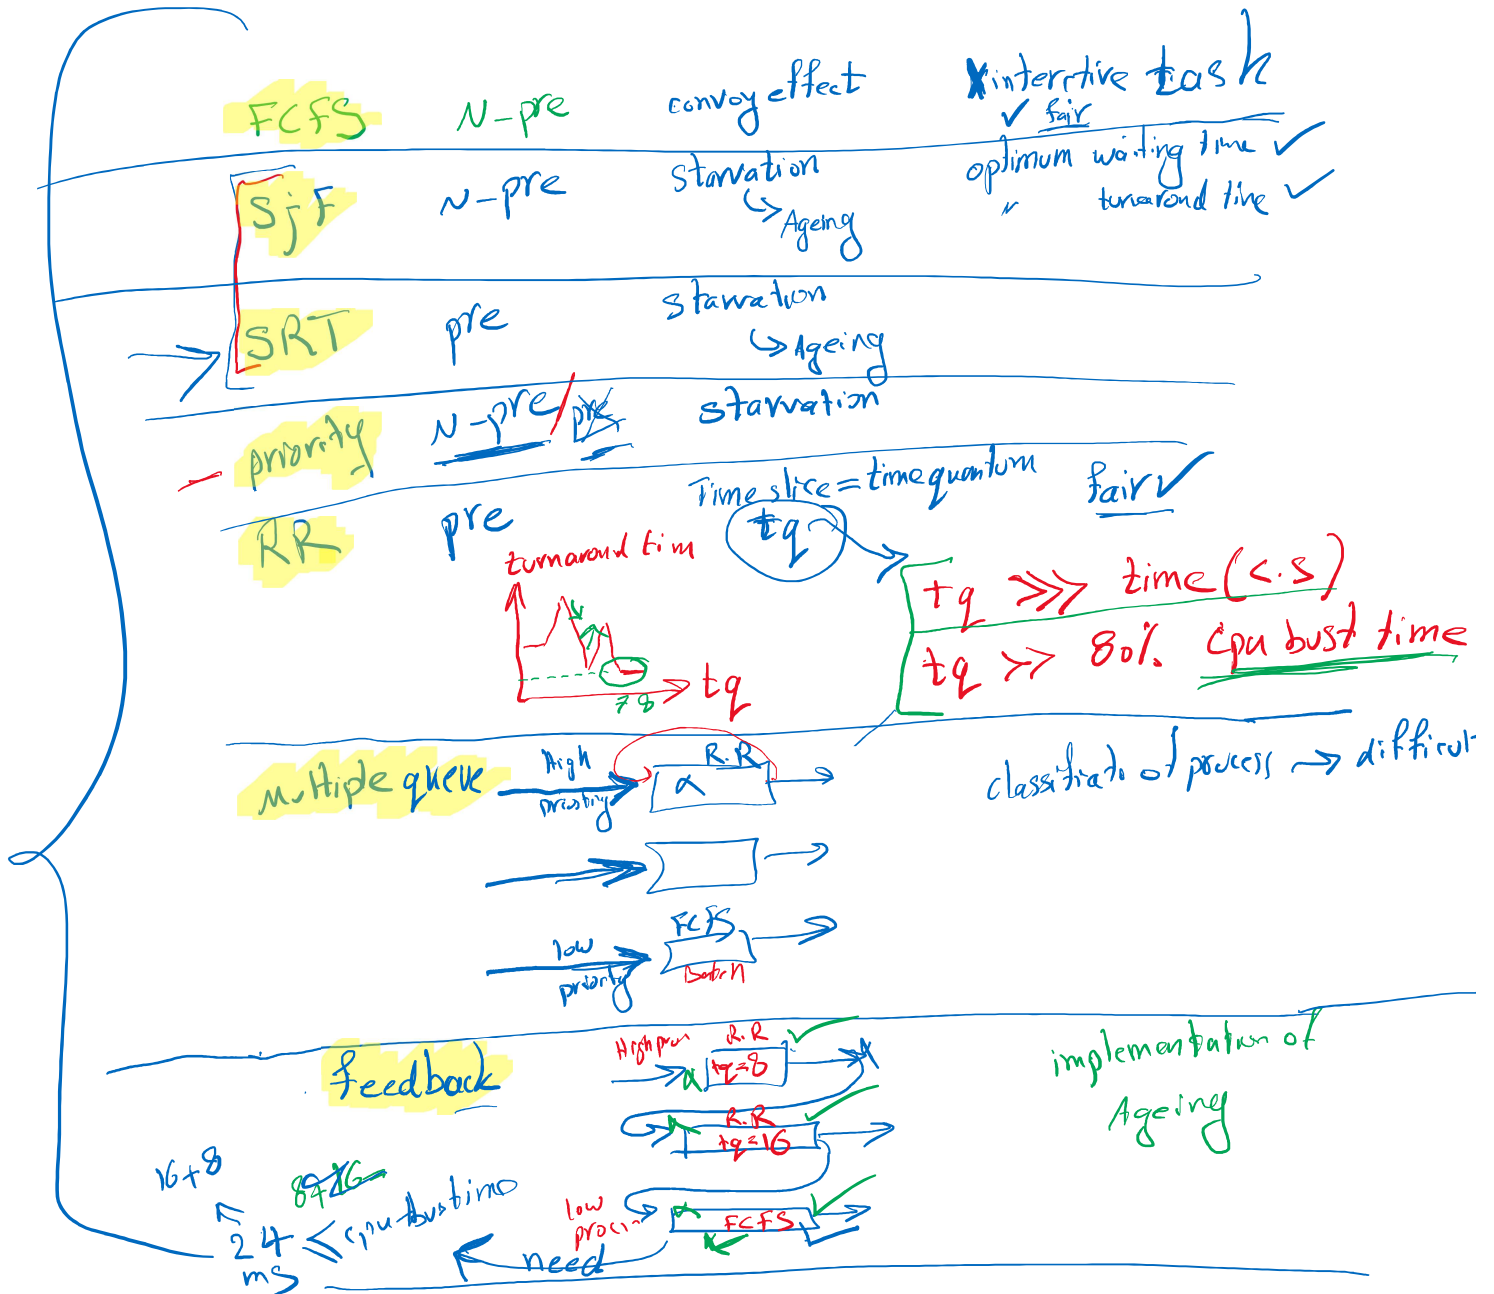 FCFS N-pre convoy effect X interctive task
✓ fair
Sjf N-pre starvation optimum waiting time ✓
↳ Ageing " turnarond time ✓
SRT pre starvation
↳ Ageing
priority N-pre / pre starvation
RR pre Time slice = time quantum fair ✓
tq
turnaround tim
tq
78
tq >>> time (c.s)
tq >> 80% cpu bust time
Multiple queue High priority R.R
α
classificati of process → difficult
FCFS
low priority
Batch
feedback High R.R
tq=8
implementation of
Ageing
R.R
tq=16
low
FCFS
need
16+8
8+16
24 ≤ cpu-bustime
ms